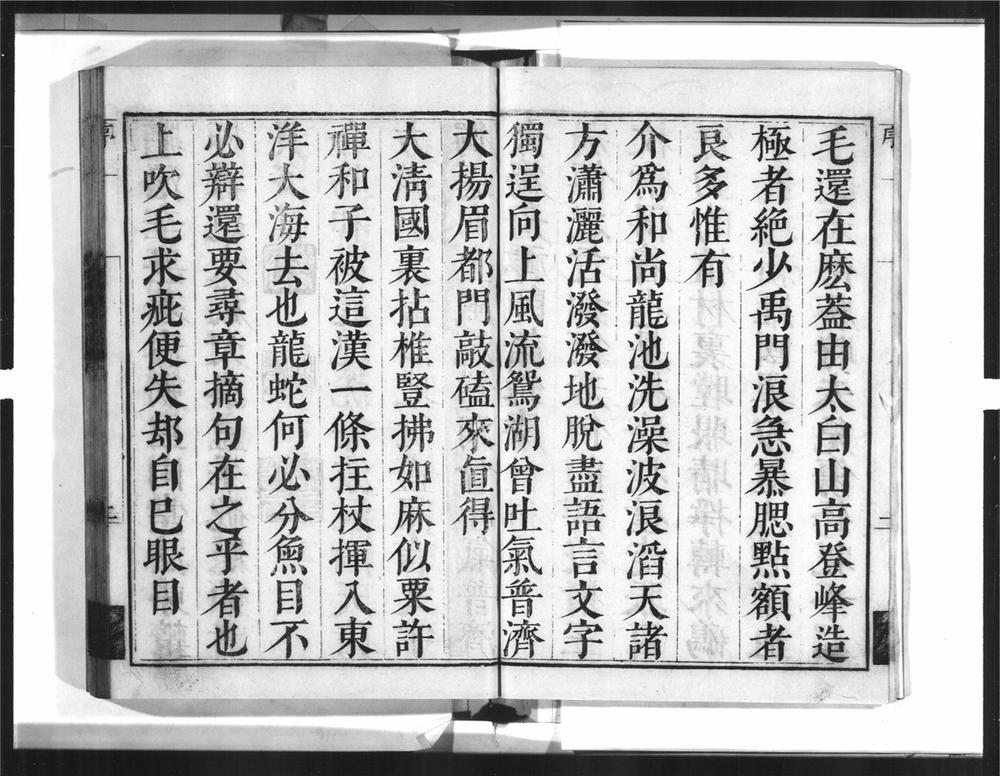 毛還在麽葢由太白山高登峰造
極者絶少禹門浪急暴腮點額者
良多惟有
介爲和尚龍池洗澡波浪滔天諸
方瀟灑活潑潑地脫盡語言文字
獨逞向上風流鴛湖曾吐氣普濟
大揚眉都門敲磕來直得
大淸國裏拈椎豎拂如麻似粟許
禪和子被這漢一條拄杖揮入東
洋大海去也龍蛇何必分魚目不
必辯還要尋章摘句在之乎者也
上吹毛求疵便失却自己眼目
序
二